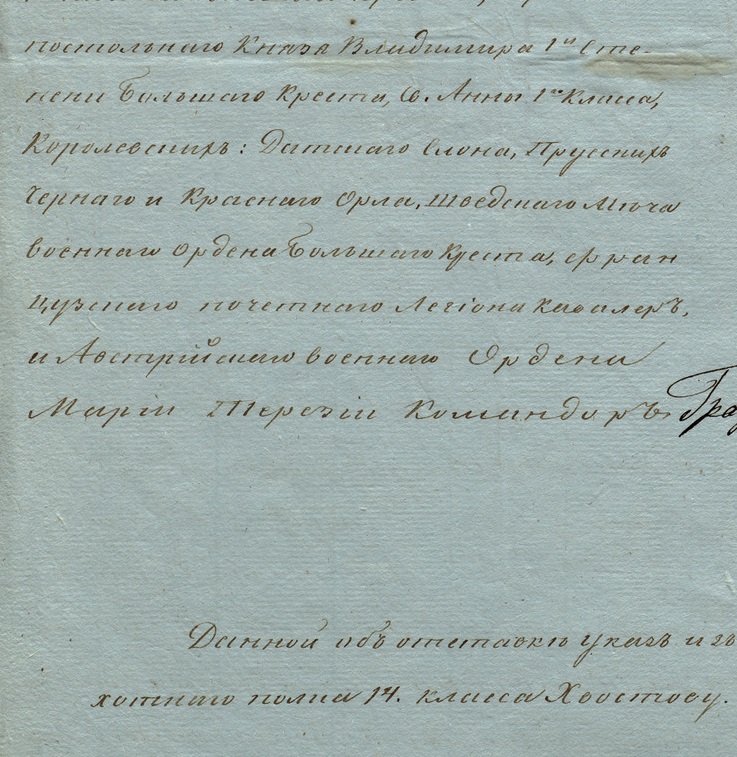 постольнаго Князя Владимира 1й Сте-
пени Большаго Креста, Св. Анны 1го Класса,
Королевскихъ: Датскаго Слона, Прусскихъ
Чернаго и Краснаго Орла, Шведскаго Меча
военнаго Ордена Большаго Креста, Фран
цузскаго почетнаго Легіона Кавалеръ,
и Австрійскаго военнаго Ордена
Маріи Терезіи Командоръ Гра
Данной объ отставке указъ изъ
хотнаго полка 14. класса Хвостову.